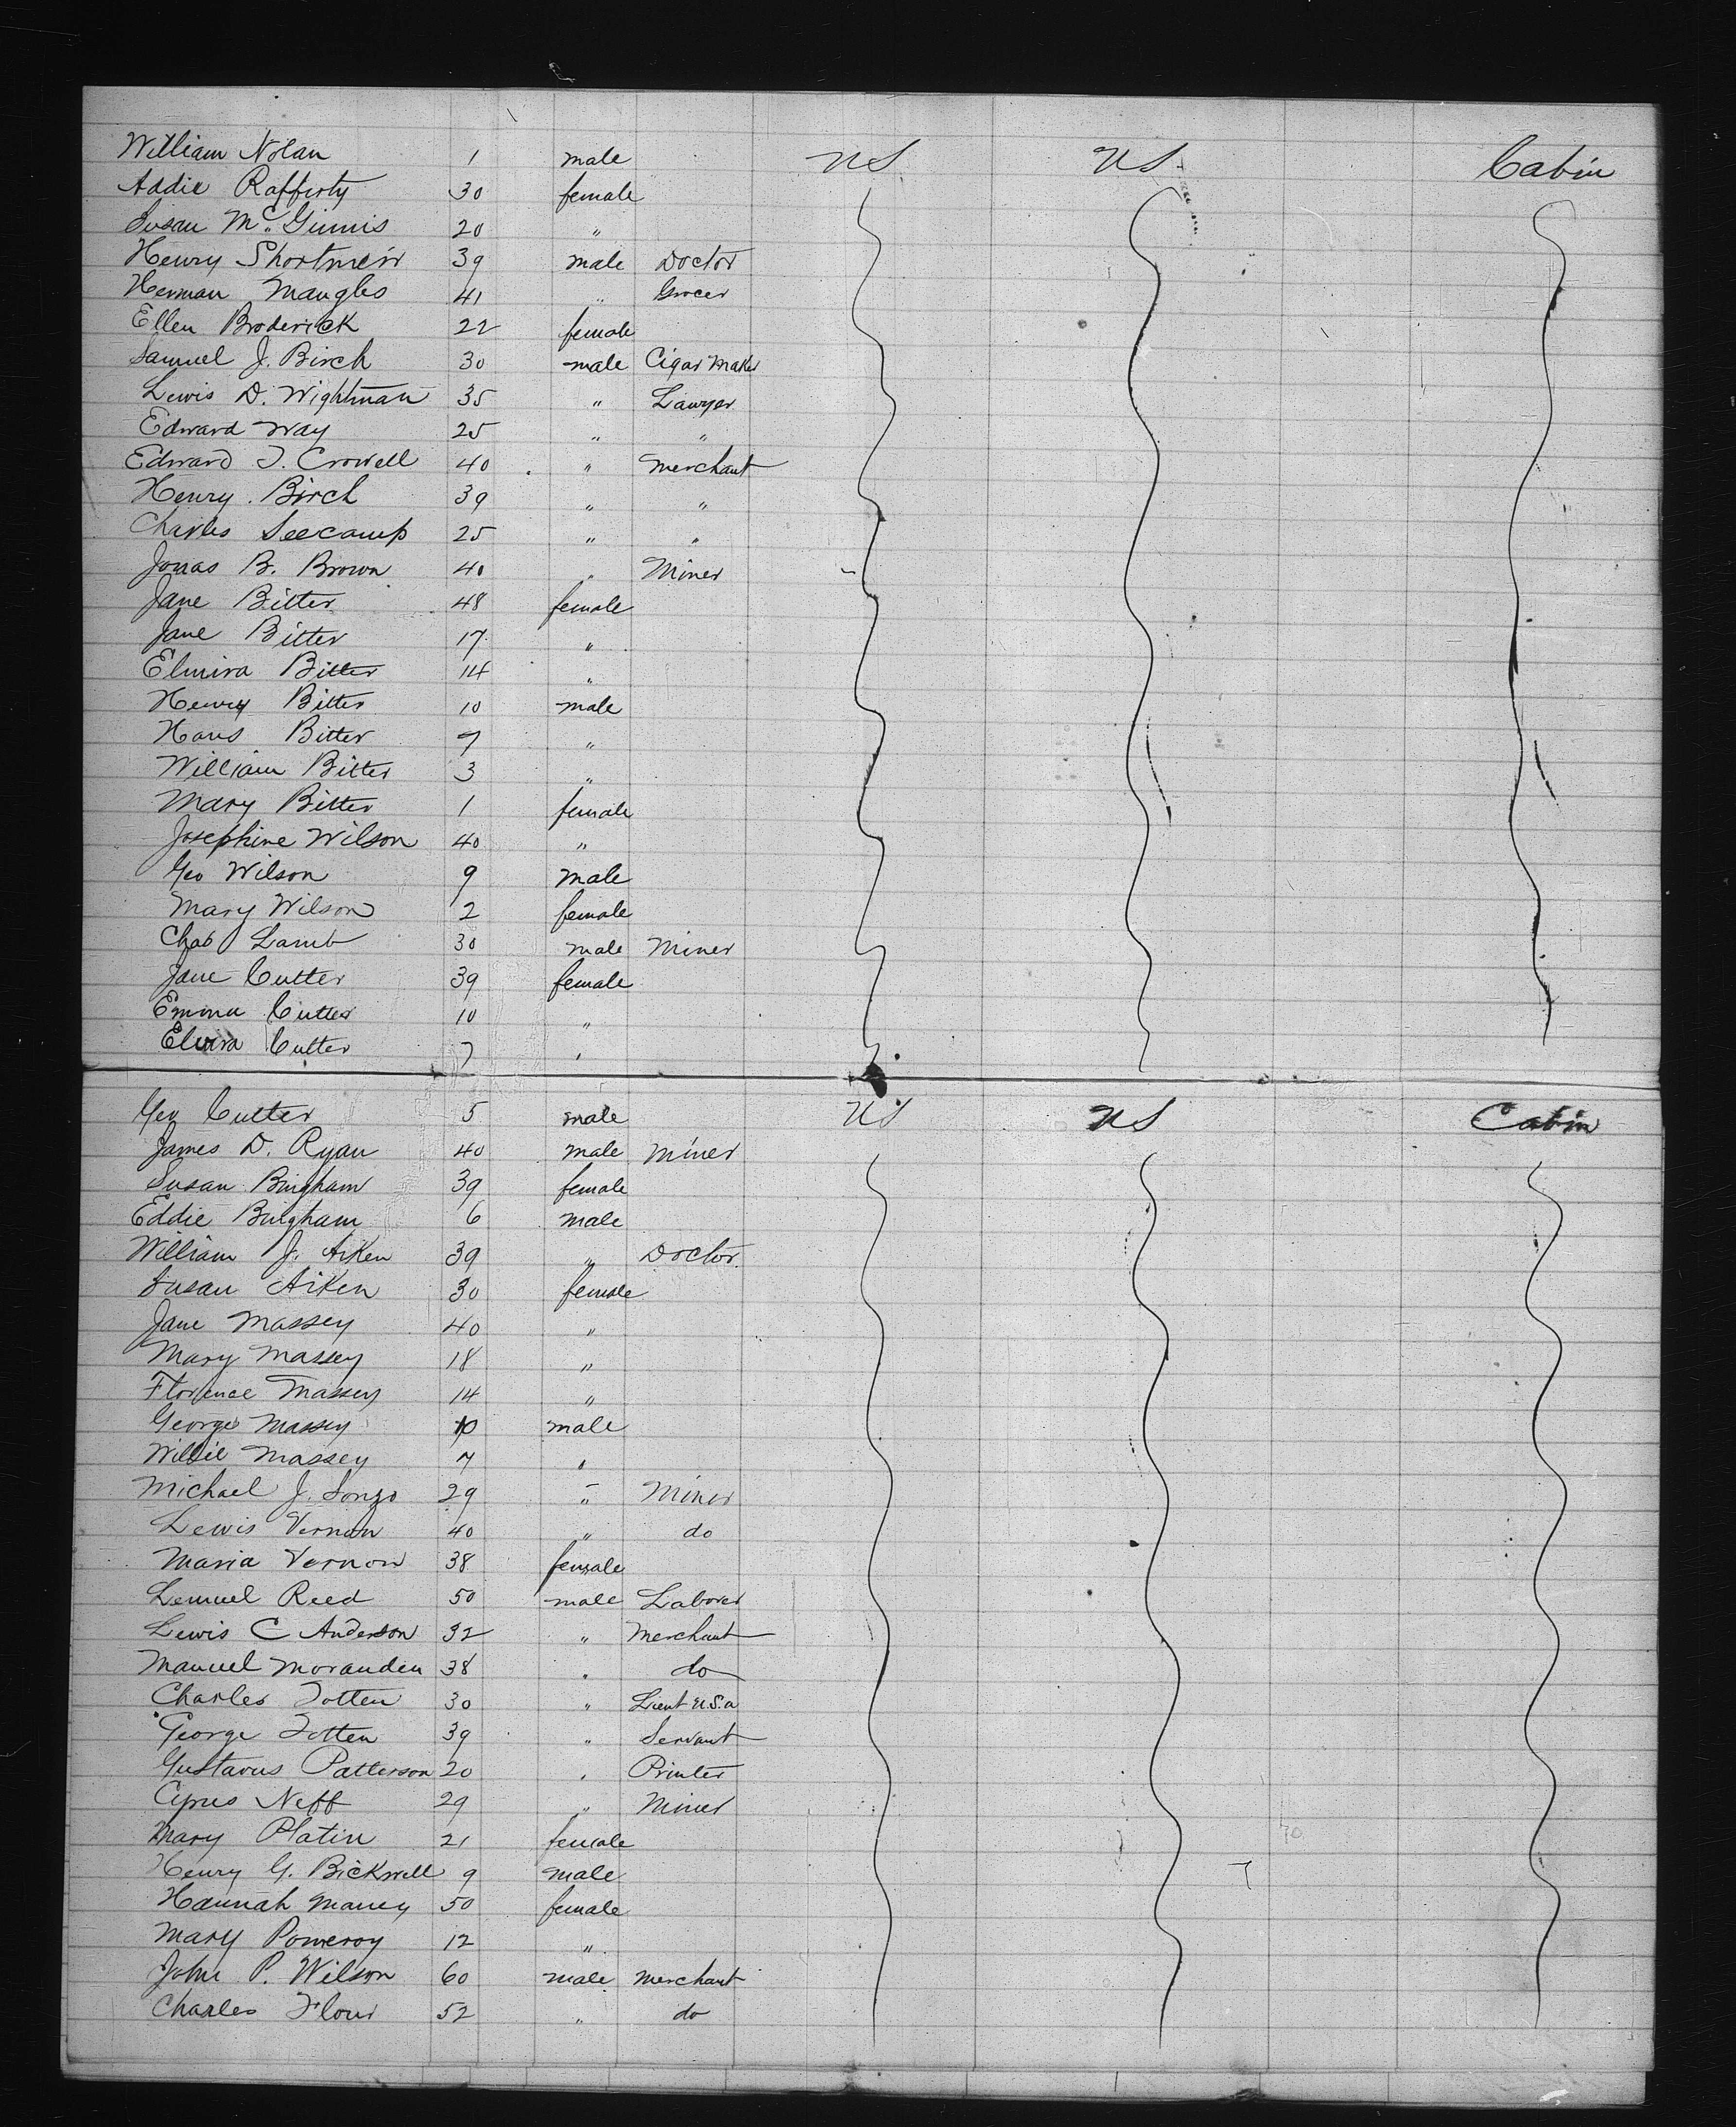 William Nolan 1 male US US Cabin
Addie Rafferty 30 female
Susan McGinnis 20 "
Henry Shortmeir 39 male Doctor
Herman Mangles 41 " Grocer
Ellen Broderick 22 female
Samuel J. Birch 30 male Cigar Maker
Lewis D. Wightman 35 " Lawyer
Edward Way 25 " "
Edward T. Crowell 40 " Merchant
Henry Birch 39 " "
Charles Seecamp 25 " "
Jonas B. Brown 40 " Miner
Jane Bitter 48 female
Jane Bitter 17 "
Elmira Bitter 14 "
Henry Bitter 10 male
Hans Bitter 7 "
William Bitter 3 "
Mary Bitter 1 female
Josephine Wilson 40 "
Geo Wilson 9 male
Mary Wilson 2 female
Chas Lamb 30 male Miner
Jane Cutter 39 female
Emma Cutter 10 "
Elvira Cutter 7 "
Geo Cutter 5 male US US Cabin
James D. Ryan 40 male Miner
Susan Bingham 39 female
Eddie Bingham 6 male
William J. Aiken 39 " Doctor
Susan Aiken 30 female
Jane Massey 40 "
Mary Massey 18 "
Florence Massey 14 "
George Massey 10 male
Willie Massey 7 "
Michael J. 29 " Miner
Lewis Vernon 40 " do
Maria Vernon 38 female
Lemuel Reed 50 male Laborer
Lewis C Anderson 32 " Merchant
Manuel Morauden 38 " do
Charles Totten 30 " Lieut U.S.A
George Totten 39 " Servant
Gustavus Patterson 20 " Printer
Cyrus Neff 29 " Miner
Mary Platin 21 female
Henry G. Bickwell 9 male
Hannah Maney 50 female
Mary Pomeroy 12 "
John P. Wilson 60 male Merchant
Charles Flour 52 " do